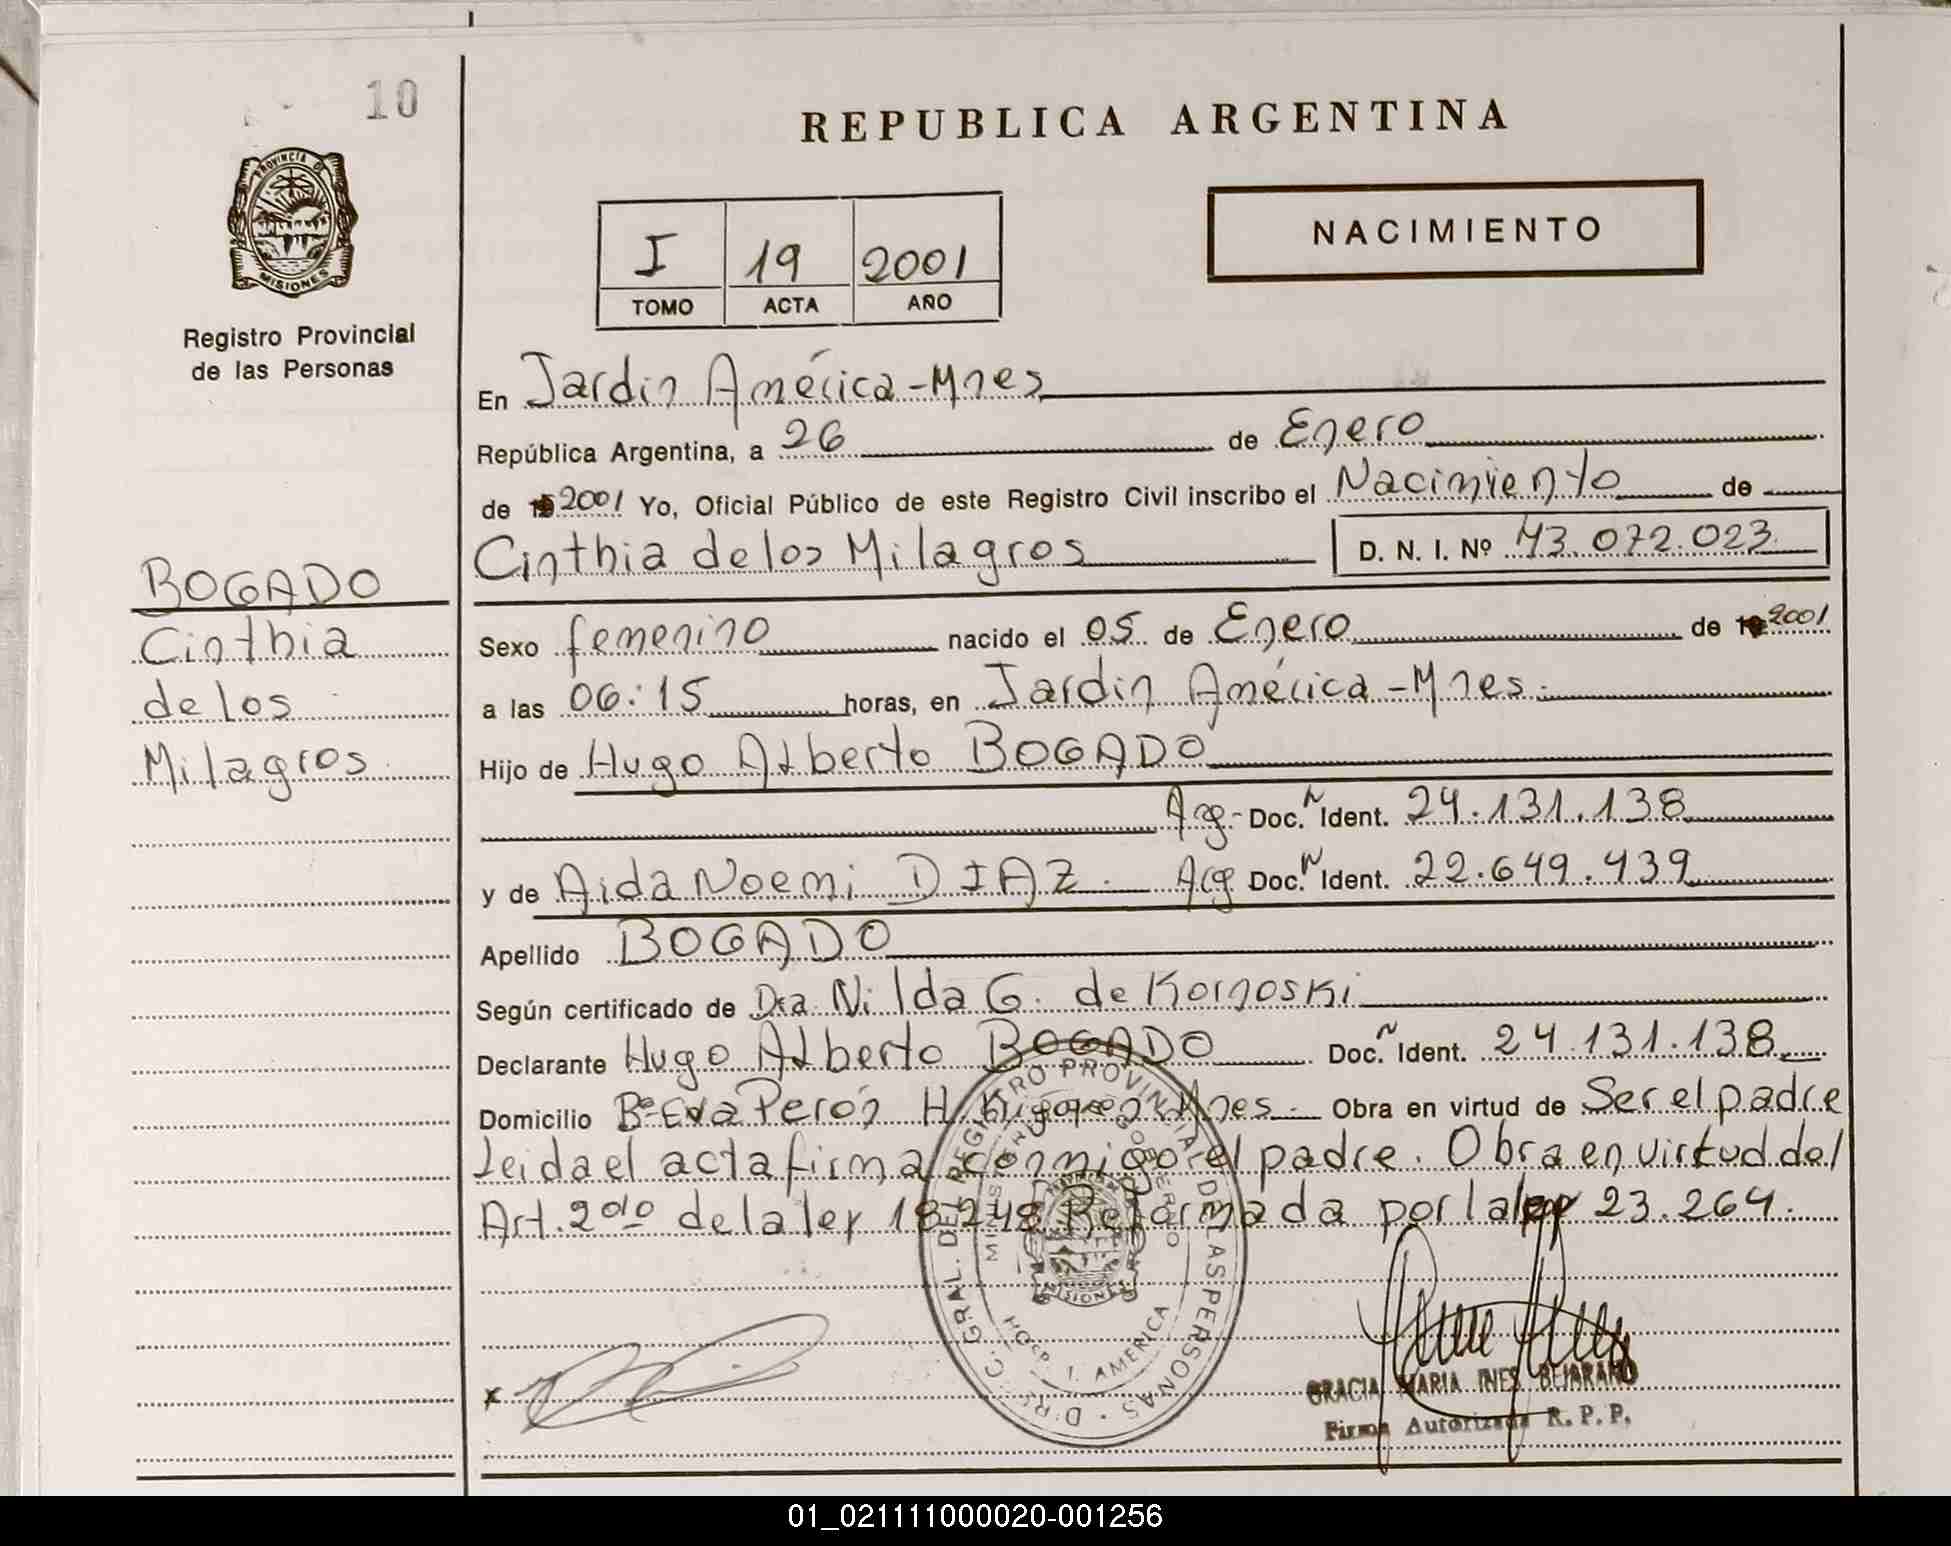 10
REPUBLICA ARGENTINA
PROVINCIA DE
MISIONES
Registro Provincial
de las Personas
NACIMIENTO
I 19 2001
TOMO ACTA AÑO
En Jardin América-Mnes
República Argentina, a 26 de Enero
de 2001 Yo, Oficial Público de este Registro Civil inscribo el Nacimiento de
Cinthia de los Milagros D. N. I. Nº 43.072.023
BOGADO
Cinthia
de los
Milagros
Sexo femenino nacido el 05 de Enero de 2001
a las 06:15 horas, en Jardin América-Mnes.
Hijo de Hugo Alberto BOGADO
Arg- Doc. N Ident. 24.131.138
y de Aida Noemi DIAZ. Arg Doc. N Ident. 22.649.439
Apellido BOGADO
Según certificado de Dra. Nilda G. de Kornoski
Declarante Hugo Alberto BOGADO Doc. N Ident. 24.131.138
Domicilio Bº Eva Perón H. Mnes. Obra en virtud de Ser el padre
Leida el acta firma conmigo el padre. Obra en virtud del
Art. 2º de la ley 18.248 Reformada por la ley 23.264.
DIR. C. GRAL. DEL REGISTRO PROVINCIAL DE LAS PERSONAS
MINISTERIO GOBIERNO
MISIONES
J. AMERICA
x
GRACIA MARIA INES BEJARANO
Firma Autorizada R. P. P.
01_021111000020-001256